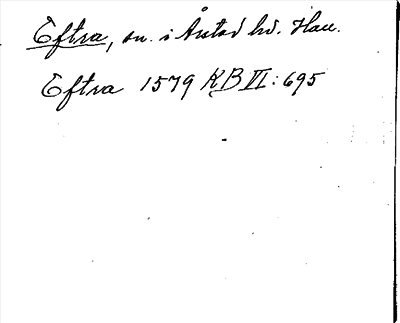 Eftra, sn. i Årstad hd. Hall.
Eftra 1579 KB VI: 695